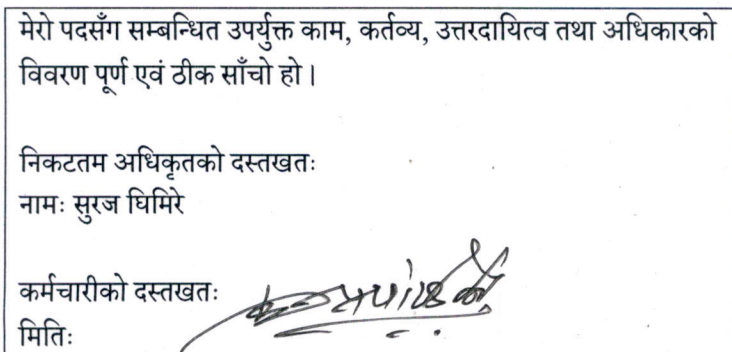 मेरो पदसँग सम्बन्धित उपर्युक्त काम, कर्तव्य, उत्तरदायित्व तथा अधिकारको
विवरण पूर्ण एवं ठीक साँचो हो।
निकटतम अधिकृतको दस्तखतः
नामः सुरज घिमिरे
कर्मचारीको दस्तखतः
मितिः